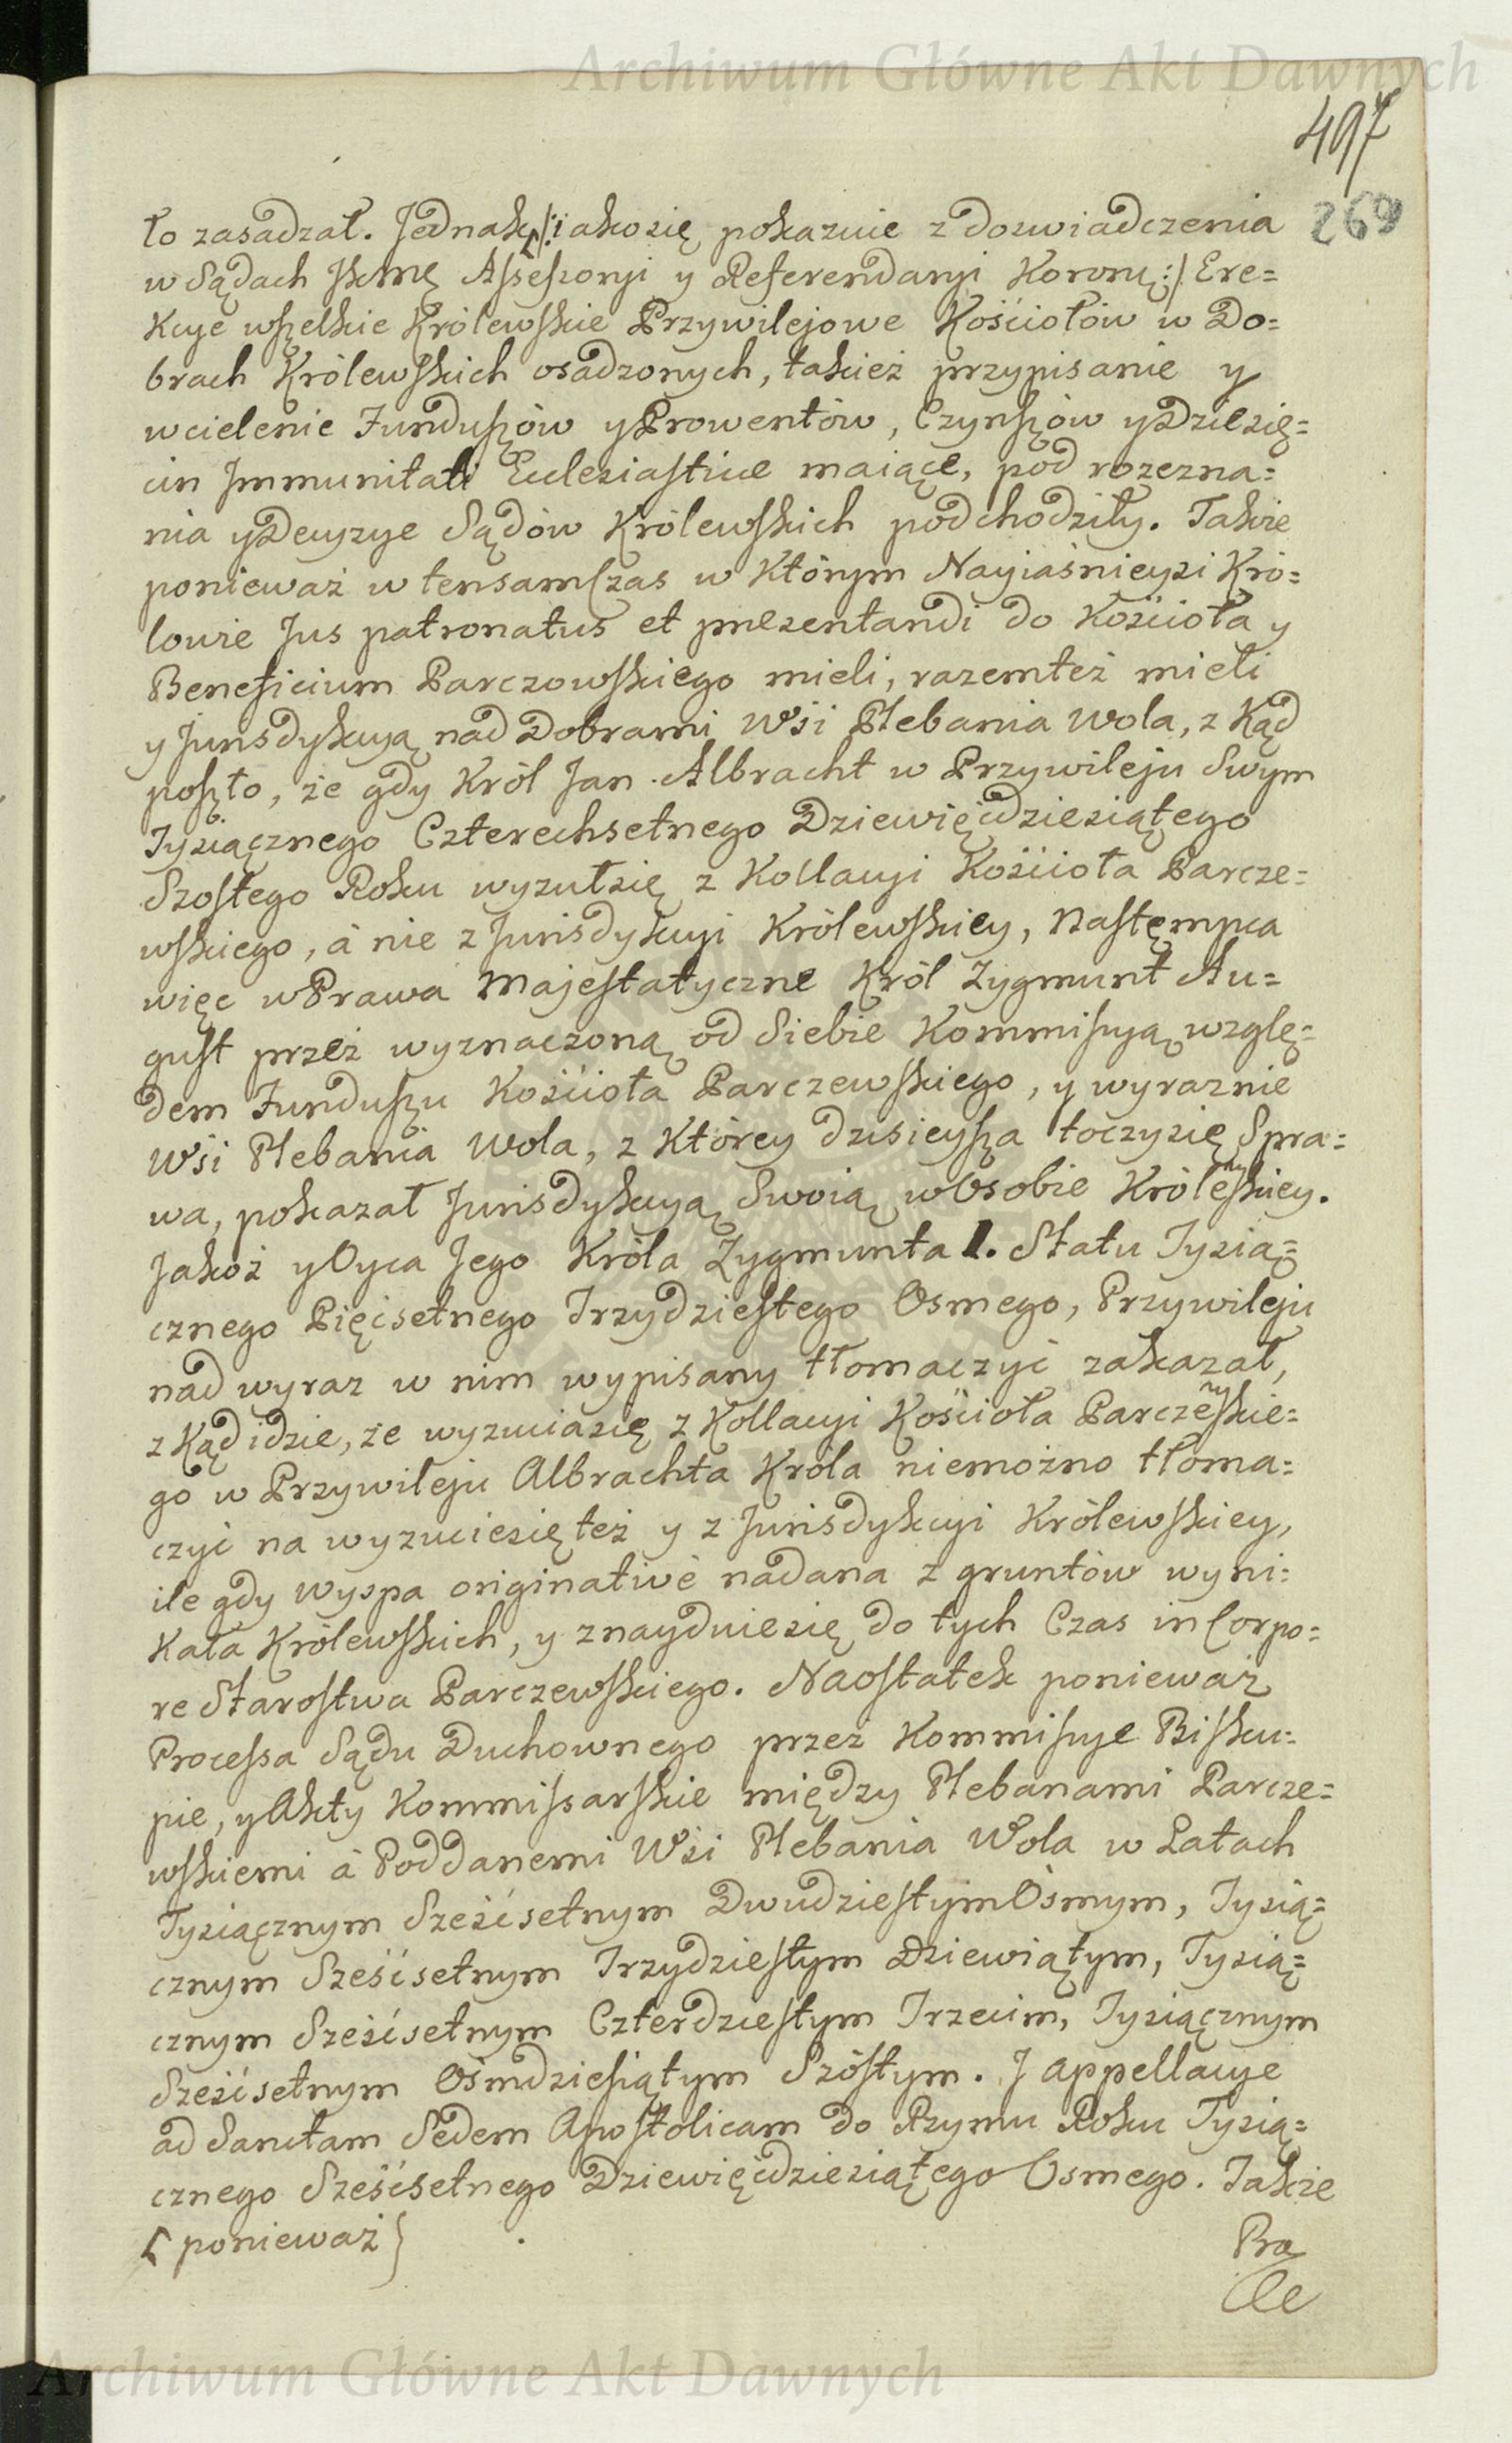 Archiwum Główne Akt Dawnych
497
269
to zasadzał. Jednak [/: iako się pokazuie z doswiadczenia
w Sądach JKMę Assessoryi y Referendaryi Koronę :/ Ere=
kcye wszelkie Królewskie Przywilejowe Kościołów w Do=
brach Królewskich osadzonych, takież przypisanie y
wcielenie Funduszów y Prowentów, Czynszów y Dziesię=
cin Immunitati Ecclesiastice maiące, pod rozezna=
nia y Decyzye Sądów Królewskich podchodziły. Takie
ponieważ w ten sam Czas w którym Nayiaśnieysi Kró=
lowie Jus patronatus et præsentandi do Kościoła y
Beneficium Parczowskiego mieli, razem też mieli
y Jurisdykcyą nad Dobrami Wsi Plebania Wola, z Kąd
poszło, że gdy Król Jan Albracht w Przywileju Swym
Tysiącznego Czterechsetnego Dziewięćdziesiątego
Szostego Roku wyzuł się z Kollacyi Kościoła Parcze=
wskiego, à nie z Jurisdykcyi Królewskiey, Następca
więc w Prawa Majestatyczne Król Zygmunt Au=
gust przez wyznaczoną od Siebie Kommissyą wzglę=
dem Funduszu Kościoła Parczewskiego, y wyraznie
Wsi Plebania Wola, z Którey dzisieysza toczy się Spra=
wa, pokazał Jurisdykcyą Swoią w Osobie Królewskiey.
Jakoż y Oyca Jego Króla Zygmunta I. Statu Tysią=
cznego Pięćsetnego Trzydziestego Osmego, Przywileju
nad wyraz w nim wypisany tłomaczyć zakazał,
z Kąd idzie, że wyzucia się z Kollacyi Kościoła Parczewskie=
go w Przywileju Albrachta Króla niemożno tłoma=
czyć na wyzucie się też y z Jurisdykcyi Królewskiey,
ile gdy Wyspa originative nadana z gruntów wyni=
kała Królewskich, y znayduie się do tych Czas in Corpo=
re Starostwa Parczewskiego. Naostatek ponieważ
Processa Sądu Duchownego przez Kommissye Bisku=
pie, y Akty Kommissarskie między Plebanami Parcze=
wskiemi à Poddanemi Wsi Plebania Wola w Latach
Tysiącznym Sześćsetnym Dwudziestym Osmym, Tysią=
cznym Sześćsetnym Trzydziestym Dziewiątym, Tysią=
cznym Sześćsetnym Czterdziestym Trzecim, Tysiącznym
Sześćsetnym Osmdziesiątym Szóstym. J Appellacye
ad Sanctam Sedem Apostolicam do Rzymu Roku Tysią=
cznego Sześćsetnego Dziewięćdziesiątego Osmego. Takie
[ ponieważ }
Pra
Archiwum Główne Akt Dawnych